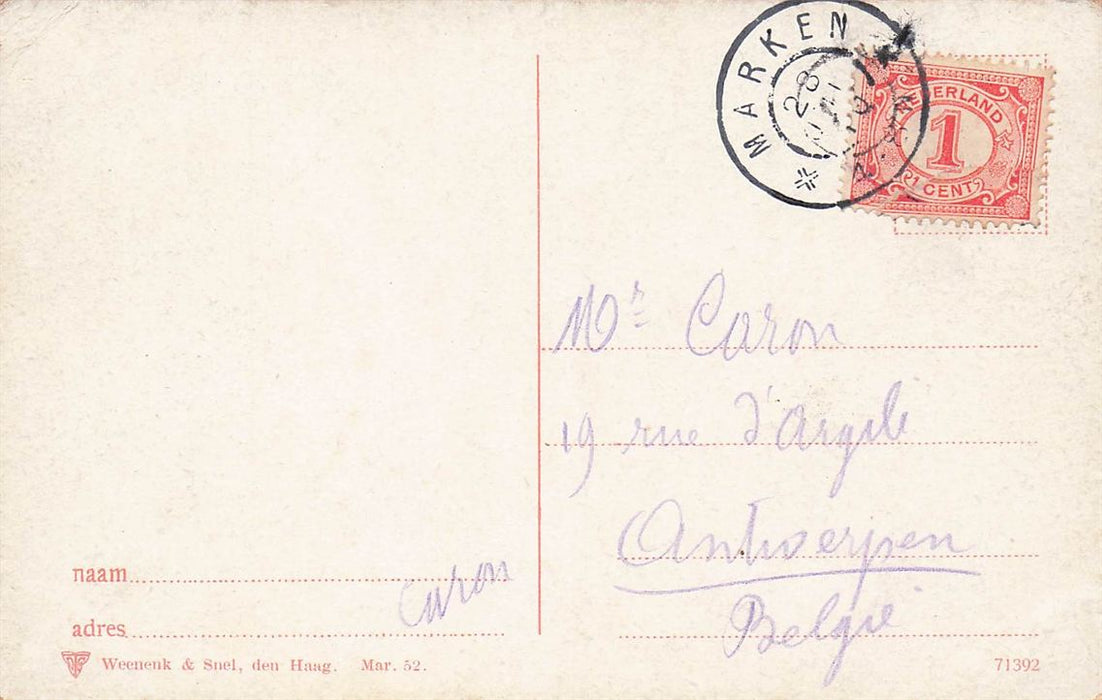 MARKEN
28
NEDERLAND
1
CENT
Mr Caron
19 rue d'Argile
Antwerpen
België
naam
caron
adres
Weenenk & Snel, den Haag. Mar. 52.
71392